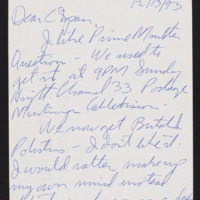 12/13/93
Dear C Span,
I like Prime Minister
Question - We used to
get it at 9PM Sunday
Night Channel 33
We now get British
Politics - I don't like it.
I would rather making
my own mind instead